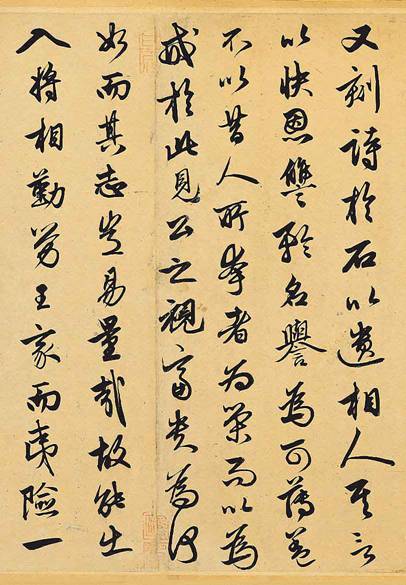 又刻詩於石以遺相人其言
以快恩讎矜名譽為可薄蓋
不以昔人所夸者為榮而以為
戒於此見公之視富貴為何
如而其志豈易量哉故能出
入將相勤勞王家而夷險一